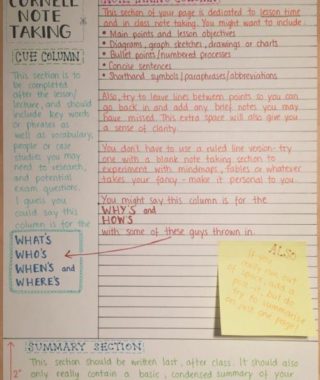 CORNELL
NOTE
TAKING
CUE COLUMN
This section is to
be completed
after the lesson/
lecture, and should
include key words
or phrases as
well as vocabulary,
people or case
studies you may
need to research,
and potential
exam questions.
I guess you
could say this
column is for the
WHAT'S
WHO'S
WHEN'S and
WHERE'S
NOTE TAKING COLUMN
This section of your page is dedicated to lesson time
and in class note taking. You might want to include:
• Main points and lesson objectives
• Diagrams, graph sketches, drawings or charts
• Bullet points/numbered processes
• Concise sentences
• Shorthand symbols/paraphrases/abbreviations
Also, try to leave lines between points so you can
go back in and add any brief notes you may
have missed. This extra space will also give you
a sense of clarity.
You don't have to use a ruled line version- try
one with a blank note taking section to
experiment with mindmaps, tables or whatever
takes your fancy - make it personal to you.
You might say this column is for the
WHY'S and
HOW'S
with some of these guys thrown in.
ALSO
If you
really run out
of space, add a
post it, but do
try to summarise
on just one page!
SUMMARY SECTION
This section should be written last, after class. It should also
2" only really contain a basic, condensed summary of your